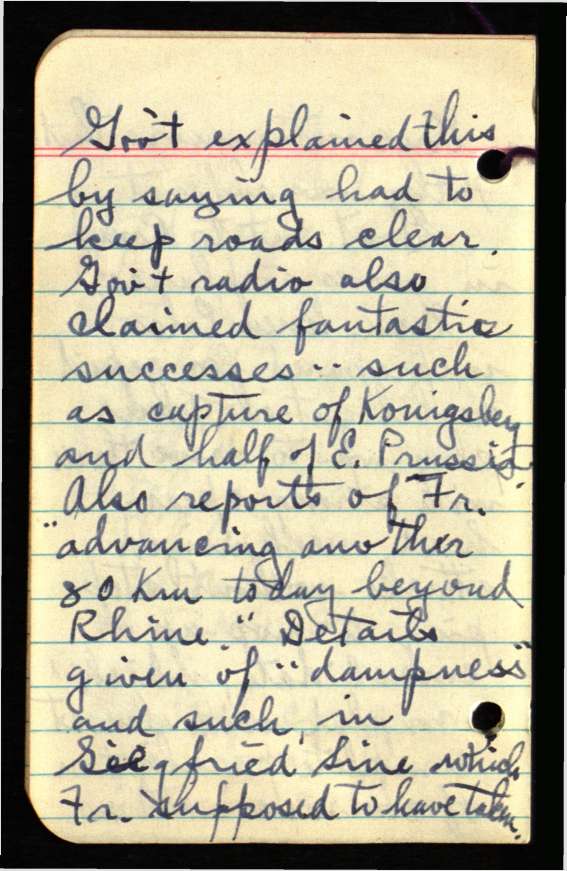 Gov't explained this
by saying had to
keep roads clear.
Gov't radio also
claimed fantastic
successes -- such
as capture of Konigsberg
and half of E. Prussia.
Also reports of Fr.
"advancing another
80 Km today beyond
Rhine." Details
given of "dampness"
and such, in
Siegfried Line which
Fr. supposed to have taken.